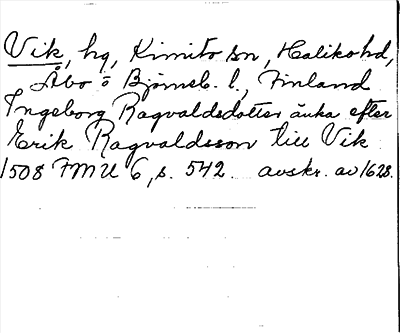 Vik, hg, Kimito sn, Halikohd,
Åbo o Björneb. l., Finland
Ingeborg Ragvaldsdotter änka efter
Erik Ragvaldsson till Vik
1508 FMU 6, s. 542. avskr. av 1628.